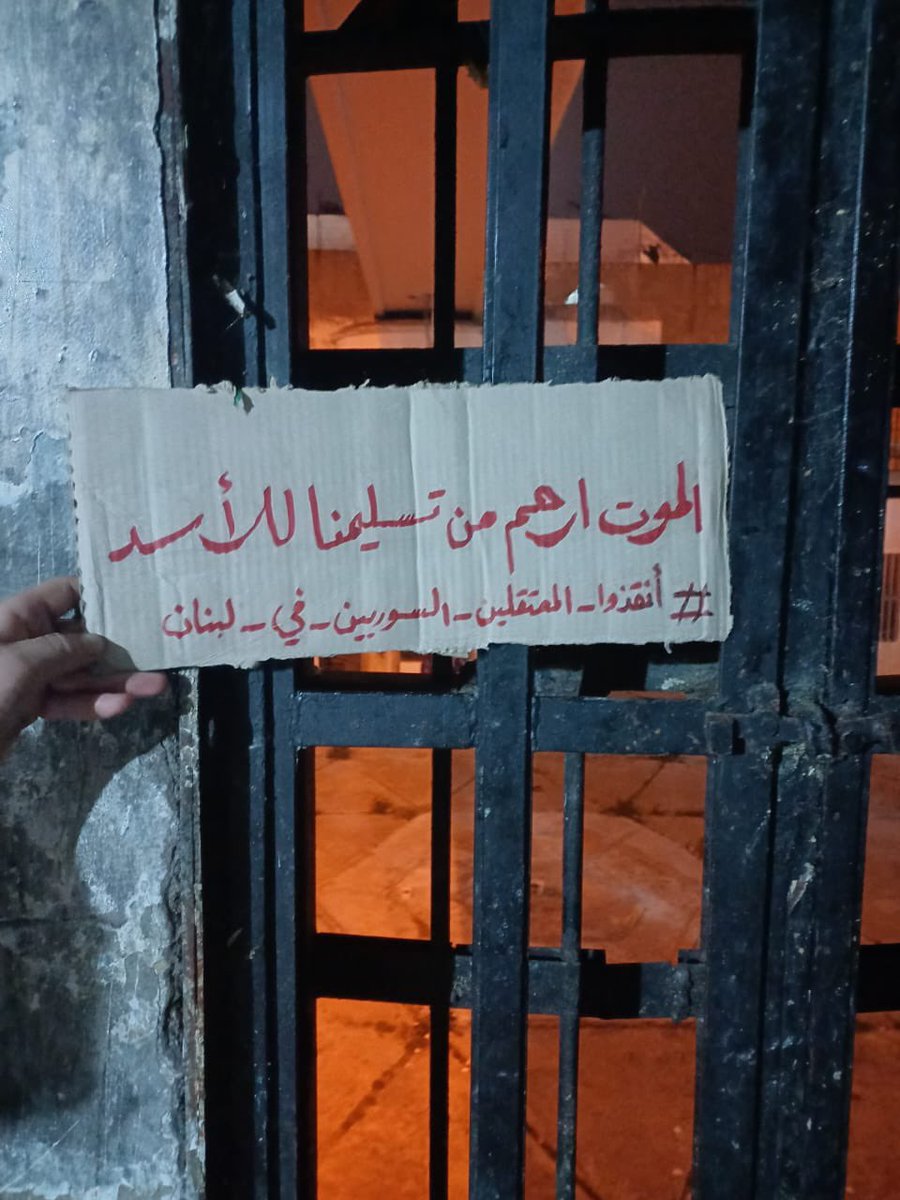 الموت ارحم من تسليمنا للأسد
# أنقذوا_المعتقلين_السوريين_في_لبنان